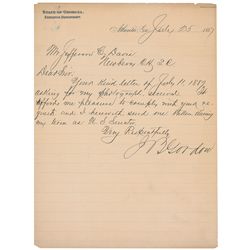 State of Georgia,
Executive Department.
Atlanta, Ga July 25 1887
Mr Jefferson C. Davis
Newberry C.H. S.C
Dear Sir.
Your kind letter of July 19. 1887
asking for my photograph received. It
affords me pleasure to comply with your re
quest and I herewith send one taken during
my term as U.S. Senator.
Very Respectfully
J B Gordon